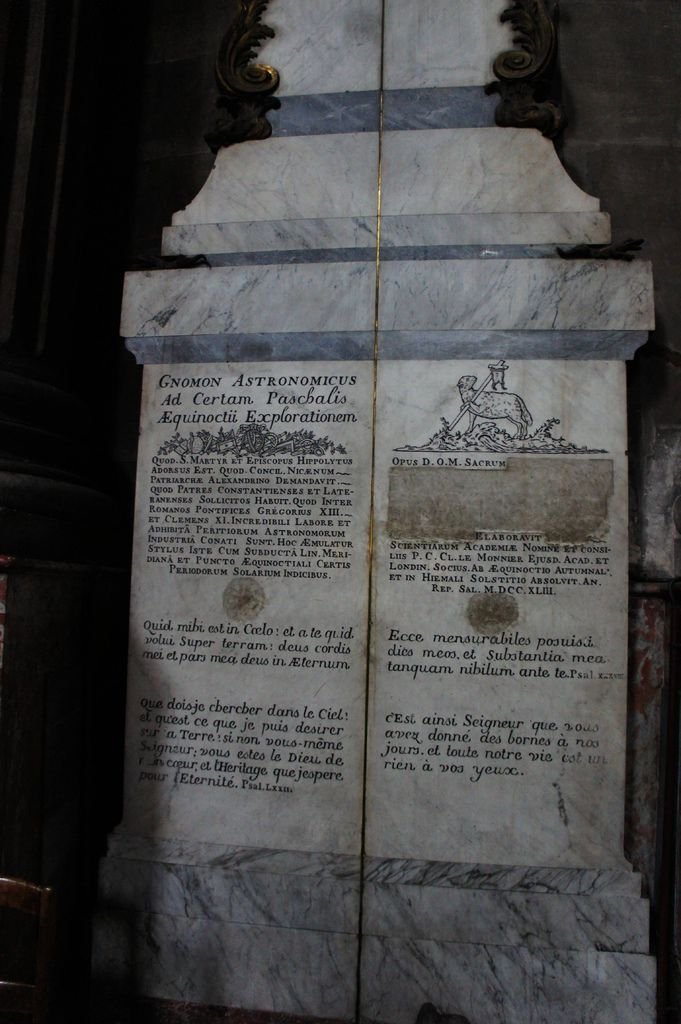 GNOMON ASTRONOMICUS
Ad Certam Paschalis
Æquinoctii Explorationem
QUOD S. MARTYR ET EPISCOPUS HIPPOLYTUS
ADORSUS EST. QUOD CONCIL. NICÆNUM
PATRIARCHÆ ALEXANDRINO DEMANDAVIT.
QUOD PATRES CONSTANTIENSES ET LATE-
RANENSES SOLLICITOS HABUIT. QUOD INTER
ROMANOS PONTIFICES GREGORIUS XIII.
ET CLEMENS XI. INCREDIBILI LABORE ET
ADHIBITÂ PERITIORUM ASTRONOMORUM
INDUSTRIÂ CONATI SUNT. HOC ÆMULATUR
STYLUS ISTE CUM SUBDUCTÂ LIN. MERI-
DIANÂ ET PUNCTO ÆQUINOCTIALI CERTIS
PERIODORUM SOLARIUM INDICIBUS.
Quid mihi est in Cœlo: et a te quid
volui Super terram: deus cordis
mei et pars mea deus in Æternum
que doisje chercher dans le Ciel:
et qu'est ce que je puis desirer
sur a Terre: si non vous-même
Seigneur; vous estes le Dieu de
mon cœur, et l'Heritage que j'espere
pour l'Eternité. Psal. LXXII.
OPUS D. O. M. SACRUM
ELABORAVIT
SCIENTIARUM ACADEMIÆ NOMINE ET CONSI-
LIIS P. C. CL. LE MONNIER EJUSD. ACAD. ET
LONDIN. SOCIUS. AB ÆQUINOCTIO AUTUMNALI
ET IN HIEMALI SOLSTITIO ABSOLVIT. AN.
REP. SAL. M.DCC.XLIII.
Ecce mensurabiles posuisti
dies meos. et Substantia mea
tanquam nihilum ante te. Psal. XXXVIII
c'Est ainsi Seigneur que vous
avez donné des bornes à nos
jours. et toute notre vie est un
rien à vos yeux.